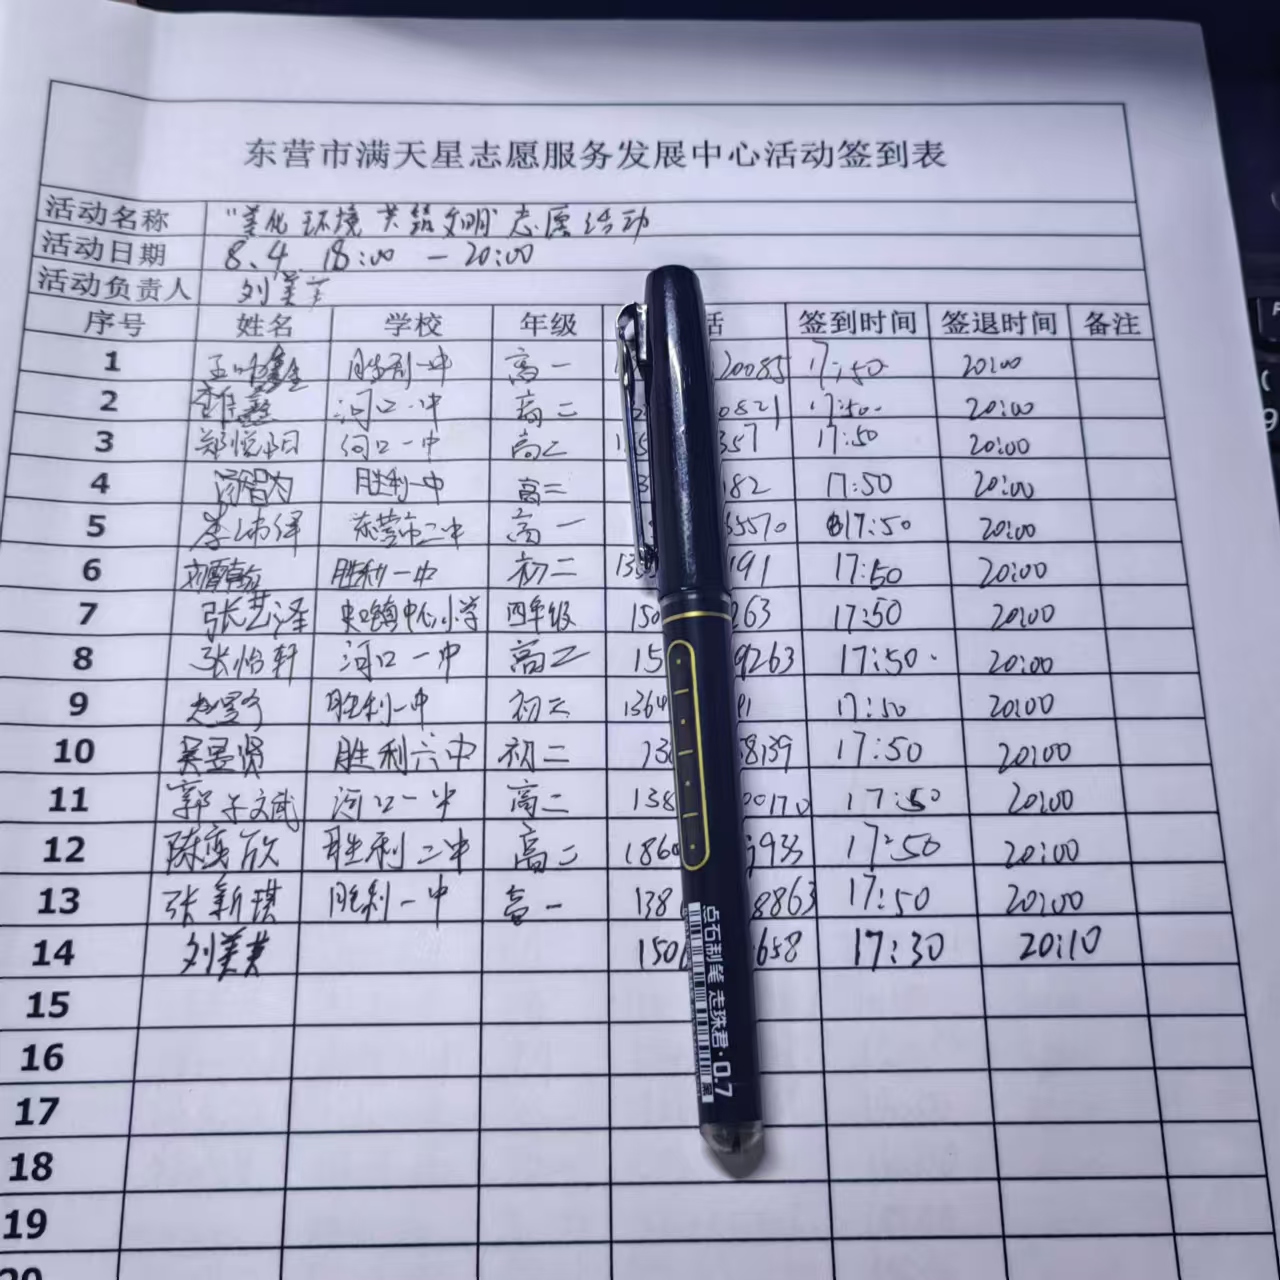 东营市满天星志愿服务发展中心活动签到表
活动名称 "美化环境 共筑文明"志愿活动
活动日期 8.4 18:00 — 20:00
活动负责人 刘美
序号 姓名 学校 年级 话 签到时间 签退时间 备注
1 胜利一中 高一 20085 17:50 20:00
2 河口一中 高二 0821 17:50 20:00
3 郑悦阳 河口一中 高二 357 17:50 20:00
4 胜利一中 高三 182 17:50 20:00
5 李 东营市二中 高一 5570 17:50 20:00
6 胜利一中 初二 191 17:50 20:00
7 张艺泽 中心小学 四年级 150 263 17:50 20:00
8 张怡轩 河口一中 高二 15 9263 17:50 20:00
9 胜利一中 初二 1364 91 17:50 20:00
10 吴昱贤 胜利六中 初二 8139 17:50 20:00
11 郭 河口一中 高二 138 00170 17:50 20:00
12 陈 欣 胜利二中 高二 186 933 17:50 20:00
13 张新琪 胜利一中 高一 138 8863 17:50 20:00
14 刘美 150 658 17:30 20:10
15
16
17
18
19
20
点石制笔 走珠君·0.7 黑